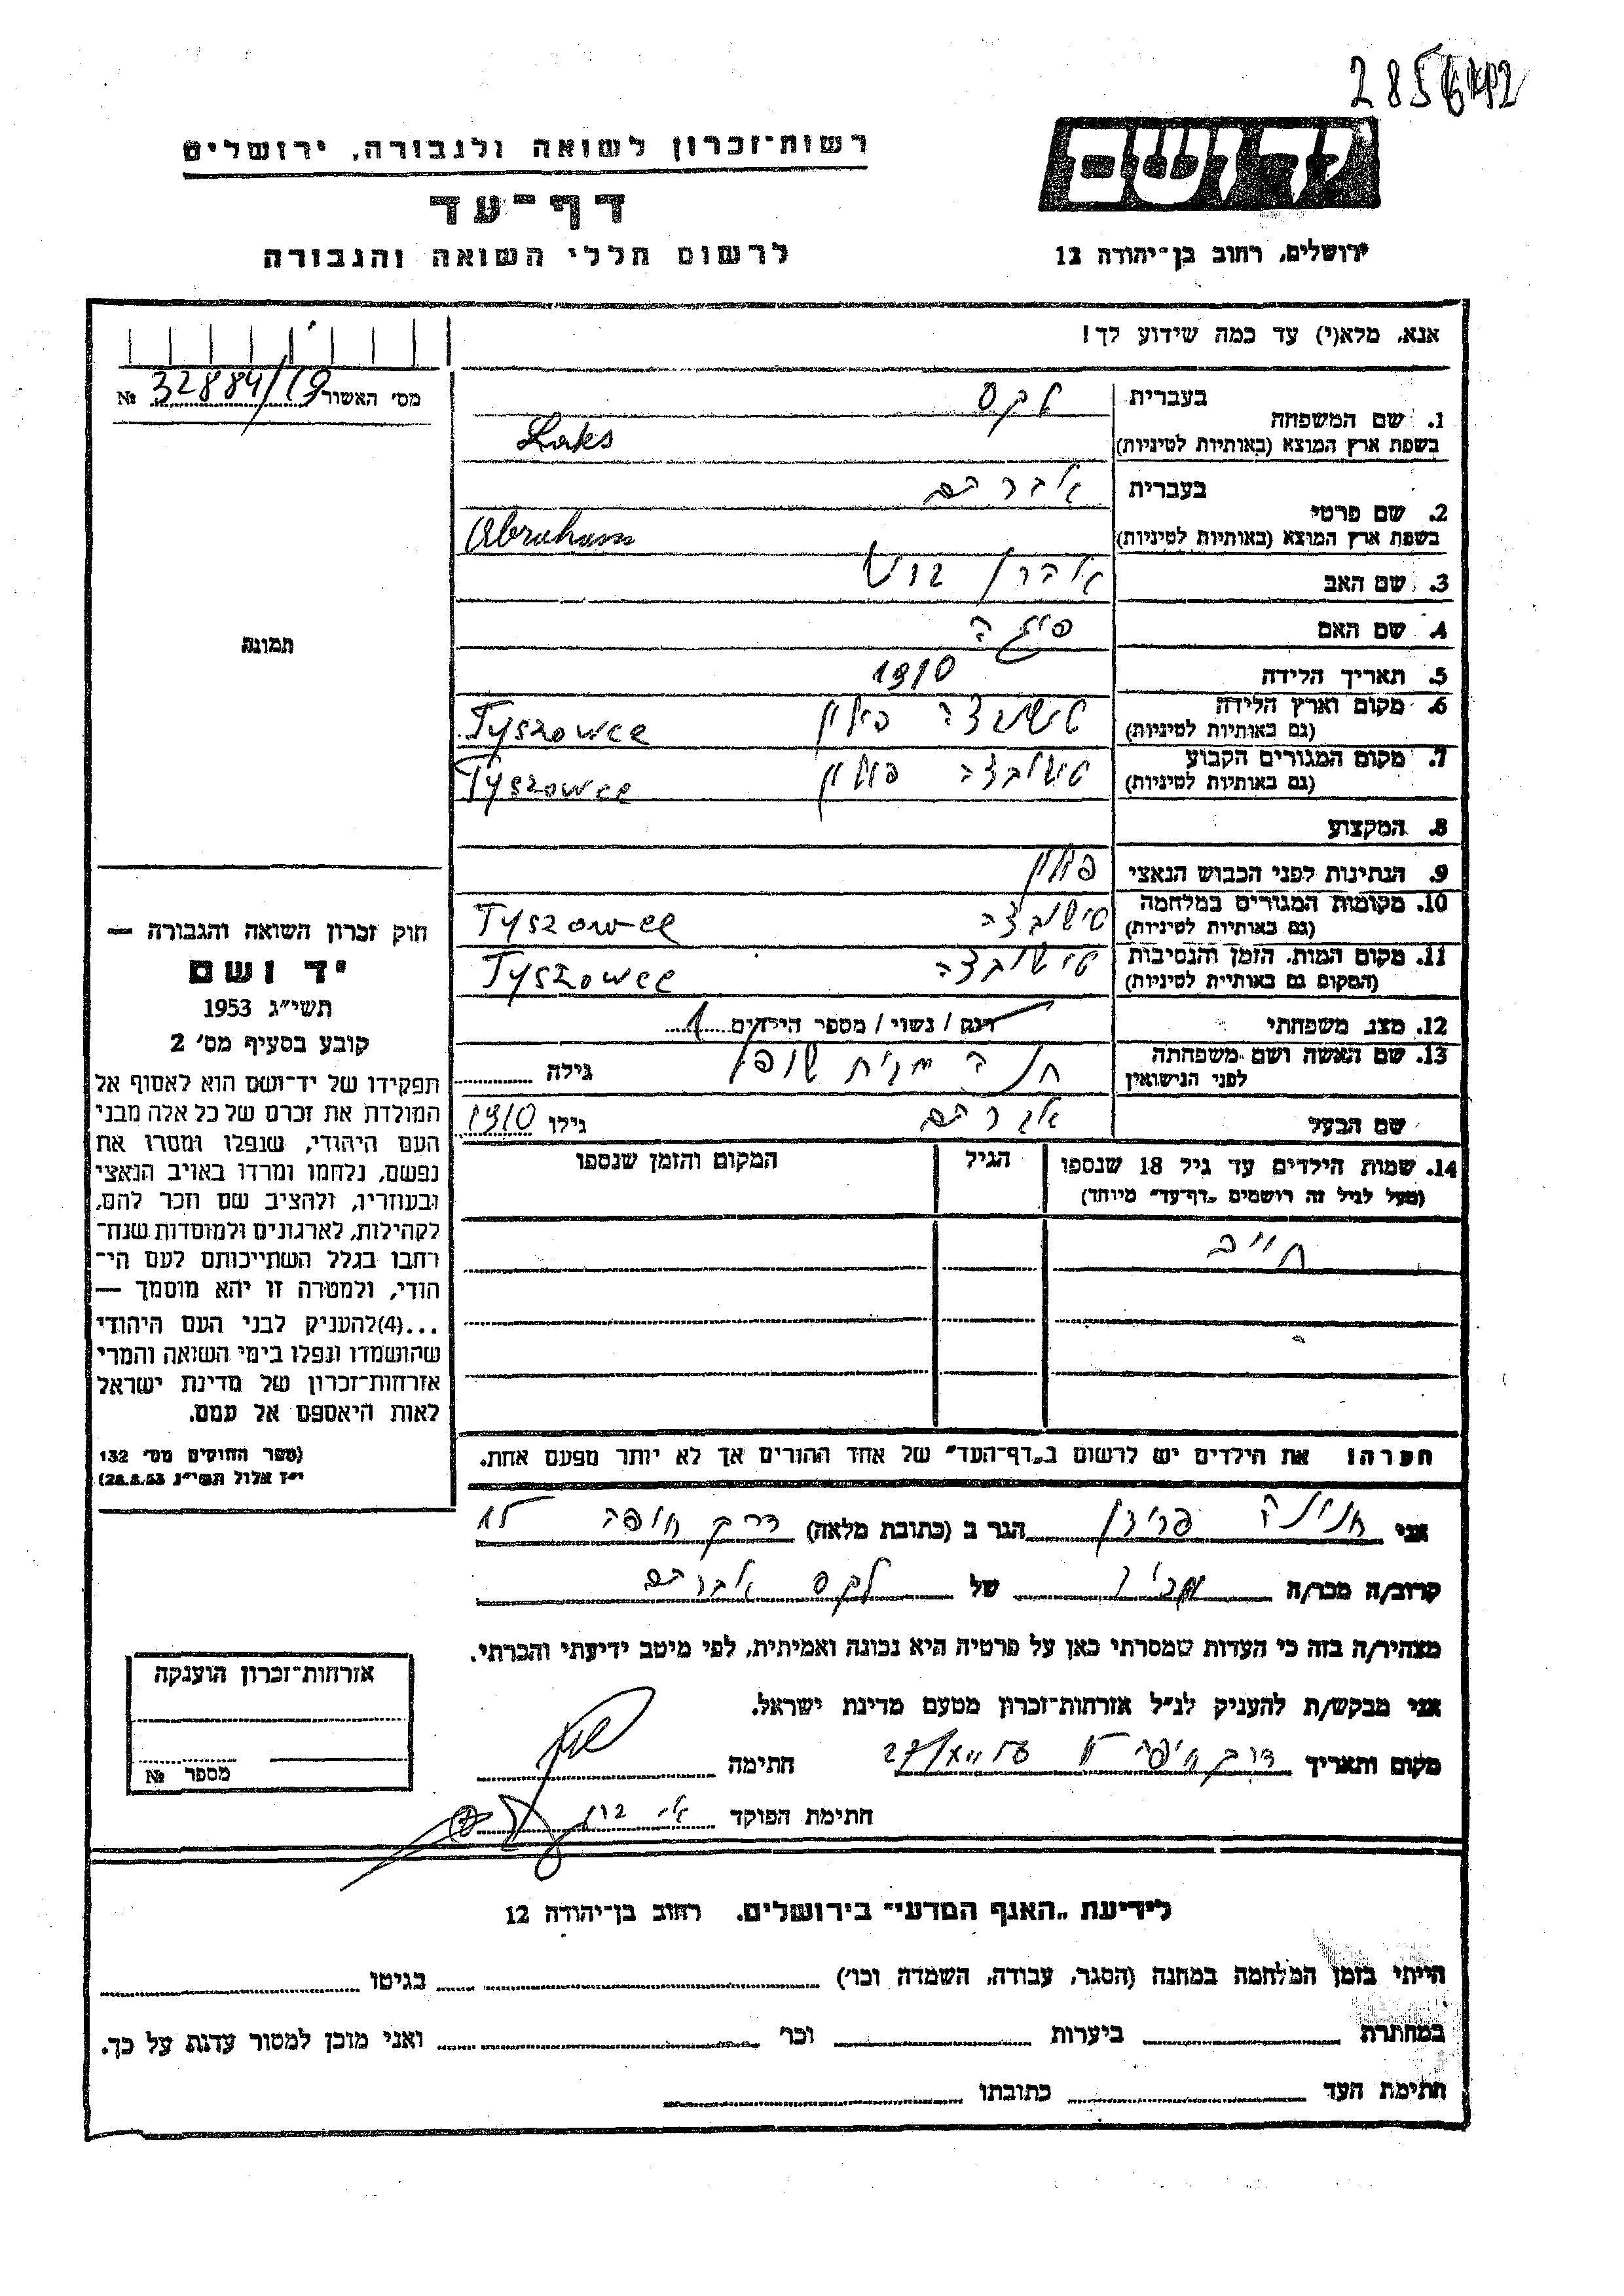 רשות־זכרון לשואה ולגבורה, ירושלים
דף־עד
לרשום חללי השואה והגבורה
ידושם
ירושלים, רחוב בן־יהודה 12
אנא, מלא(י) עד כמה שידוע לך!
מס׳ האשור 32884/19 №
בעברית לקס
1. שם המשפחה
בשפת ארץ המוצא (באותיות לטיניות) Laks
בעברית אברהם
2. שם פרטי
בשפת ארץ המוצא (באותיות לטיניות) Abraham
3. שם האב אהרן
4. שם האם
5. תאריך הלידה 1910
6. מקום וארץ הלידה פולין Tyszowce
(גם באותיות לטיניות)
7. מקום המגורים הקבוע טישובצה פולין Tyszowce
(גם באותיות לטיניות)
8. המקצוע
9. הנתינות לפני הכבוש הנאצי פולין
10. מקומות המגורים במלחמה טישובצה Tyszowce
(גם באותיות לטיניות)
11. מקום המות, הזמן והנסיבות טישובצה Tyszowce
(המקום גם באותיות לטיניות)
12. מצב משפחתי רוק / נשוי / מספר הילדים 1
13. שם האשה ושם משפחתה חנה גילה
לפני הנישואין
שם הבעל אברהם גילו 1910
14. שמות הילדים עד גיל 18 שנספו הגיל המקום והזמן שנספו
(מעל לגיל זה רושמים „דף־עד״ מיוחד)
חייב
הערה! את הילדים יש לרשום ב„דף־העד״ של אחד ההורים אך לא יותר מפעם אחת.
תמונה
חוק זכרון השואה והגבורה —
יד ושם
תשי״ג 1953
קובע בסעיף מס׳ 2
תפקידו של יד־ושם הוא לאסוף אל
המולדת את זכרם של כל אלה מבני
העם היהודי, שנפלו ומסרו את
נפשם, נלחמו ומרדו באויב הנאצי
ובעוזריו, ולהציב שם וזכר להם,
לקהילות, לארגונים ולמוסדות שנח־
רבו בגלל השתייכותם לעם הי־
הודי, ולמטרה זו יהא מוסמך —
...(4)להעניק לבני העם היהודי
שהושמדו ונפלו בימי השואה והמרי
אזרחות־זכרון של מדינת ישראל
לאות היאספם אל עמם.
(ספר החוקים מס׳ 132
י״ז אלול תשי״ג 28.8.53)
אני פרידן הגר ב (כתובת מלאה) דרך חיפה 15
קרוב/ה מכר/ה מכיר של לקס אברהם
מצהיר/ה בזה כי העדות שמסרתי כאן על פרטיה היא נכונה ואמיתית, לפי מיטב ידיעתי והכרתי.
אני מבקש/ת להעניק לנ״ל אזרחות־זכרון מטעם מדינת ישראל.
מקום ותאריך דרך חיפה חתימה
חתימת הפוקד
אזרחות־זכרון הוענקה
מספר №
לידיעת „האגף המדעי״ בירושלים, רחוב בן־יהודה 12
הייתי בזמן המלחמה במחנה (הסגר, עבודה, השמדה וכו׳) בגיטו
במחתרת ביערות וכו׳ ואני מוכן למסור עדות על כך.
חתימת העד כתובתו